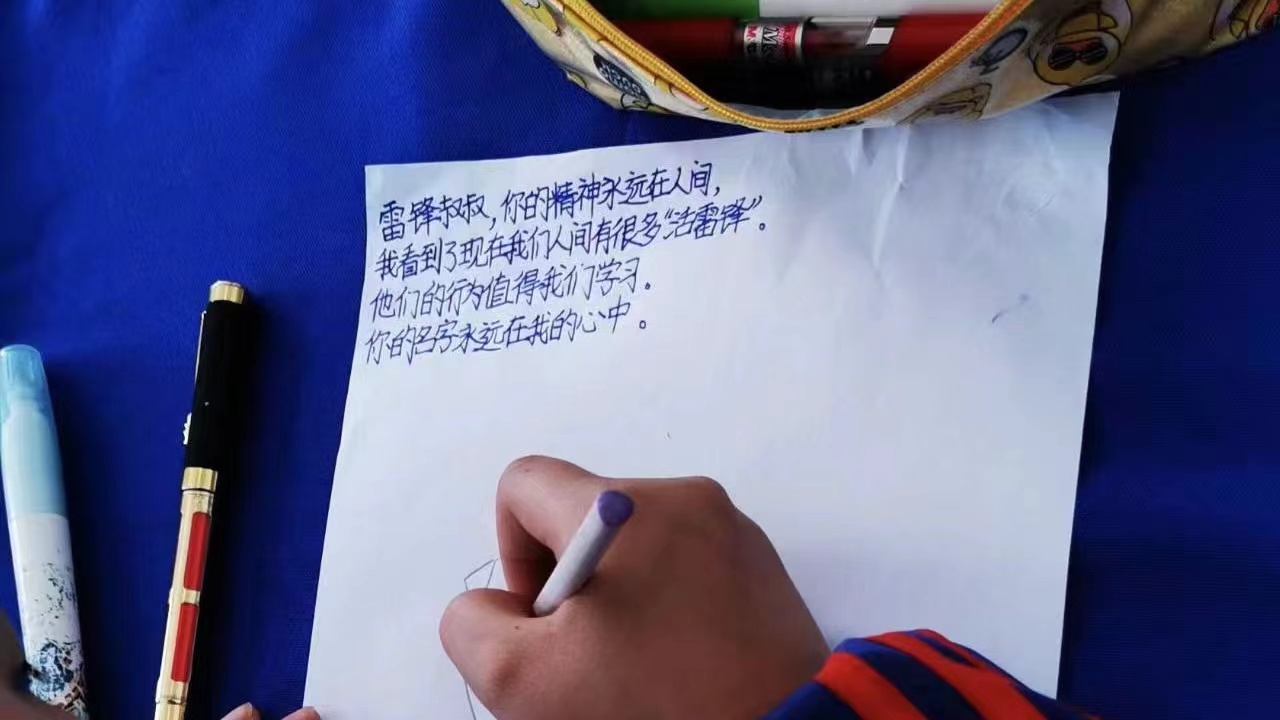 雷锋叔叔,你的精神永远在人间,
我看到了现在我们人间有很多“活雷锋”。
他们的行为值得我们学习。
你的名字永远在我的心中。